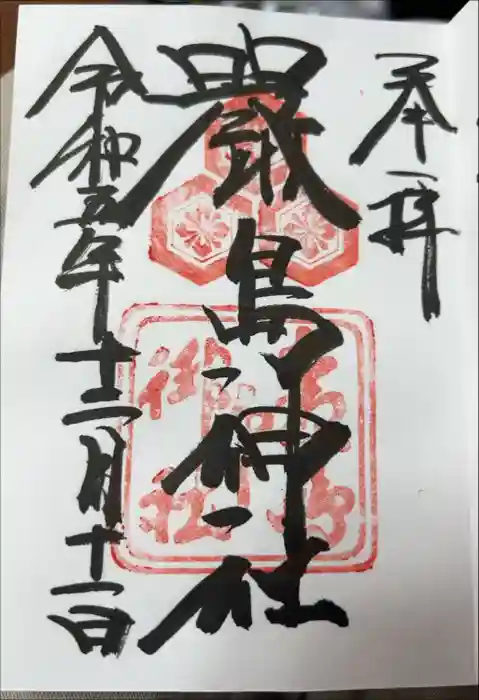 奉拝
嚴島神社
令和五年
十二月十一日